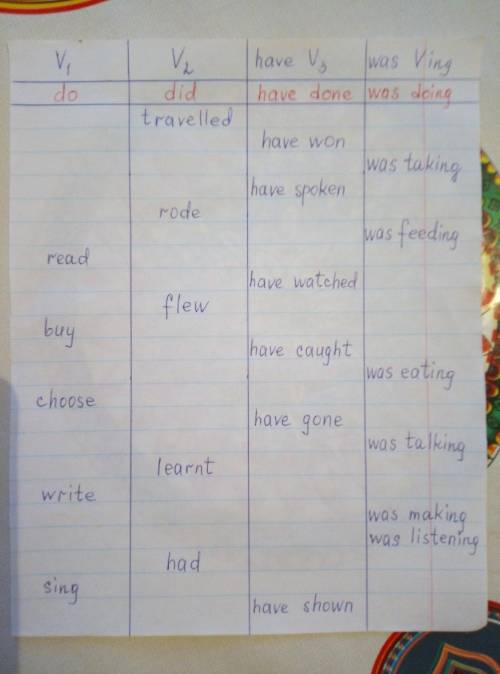 V₁ V₂ have V₃ was Ving
do did have done was doing
travelled
have won
was taking
have spoken
rode
was feeding
read
have watched
flew
buy
have caught
was eating
choose
have gone
was talking
learnt
write
was making
was listening
had
sing
have shown